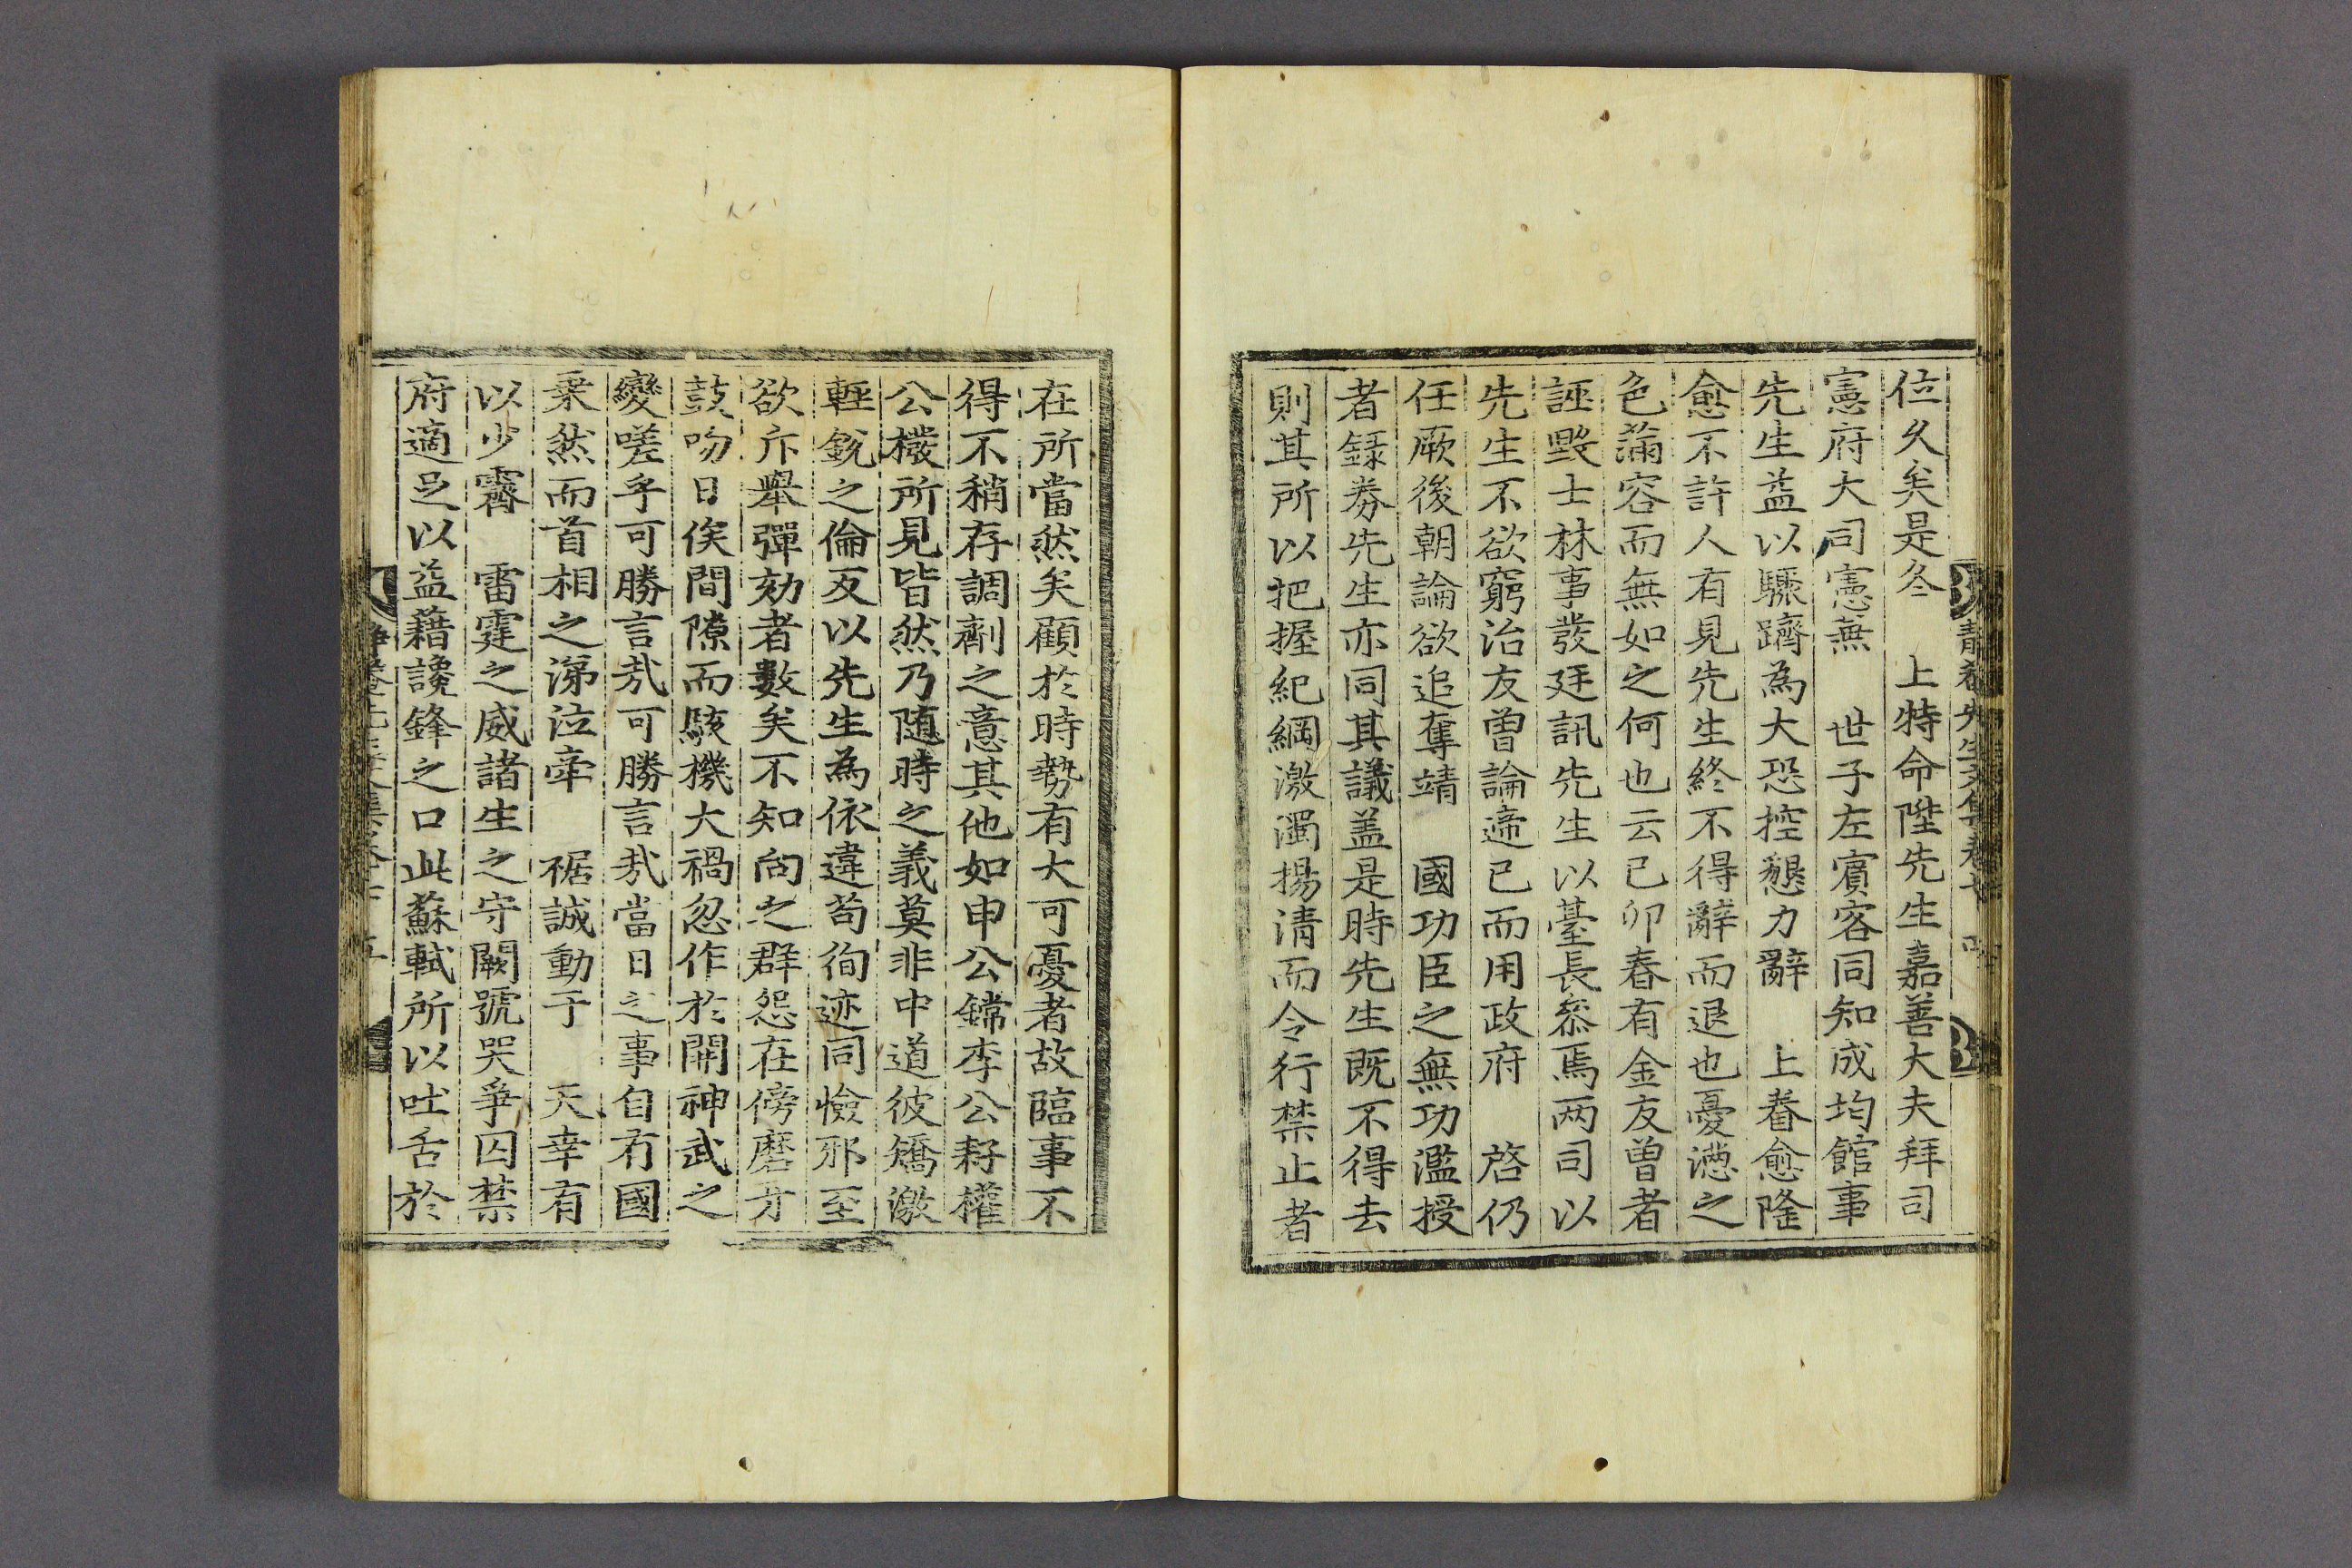 位久矣是冬　上特命陞先生嘉善大夫拜司
憲府大司憲兼　世子左賓客同知成均館事
先生益以驟躋為大恐控懇力辭　上眷愈隆
愈不許人有見先生終不得辭而退也憂懣之
色滿容而無如之何也云己卯春有金友曾者
誣毀士林事發廷訊先生以臺長叅焉两司以
先生不欲窮治友曾論遞已而用政府　啓仍
任厥後朝論欲追奪靖　國功臣之無功濫授
者録券先生亦同其議盖是時先生既不得去
則其所以把握紀綱激濁揚清而令行禁止者
在所當然矣顧於時勢有大可憂者故臨事不
得不稍存調劑之意其他如申公鏛李公耔權
公橃所見皆然乃随時之義莫非中道彼矯激
輕銳之倫反以先生為依違苟徇迹同憸邪至
欲斥舉彈劾者數矣不知向之群怨在傍磨牙
鼓吻日俟間隙而駭機大禍忽作於開神武之
變嗟乎可勝言㢤可勝言㢤當日之事自有國
乗然而首相之涕泣牽　裾誠動于　天幸有
以少霽　雷霆之威諸生之守闕號哭爭囚禁
府適足以益藉讒鋒之口此蘇軾所以吐舌於